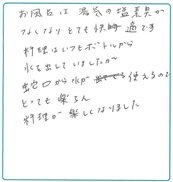 お風呂は湯気の塩素臭が
なくなりとても快適です
料理はいつもボトルから
水を出していましたが
蛇口から水が 使えるのも
とっても楽ちん
料理が楽しくなりました